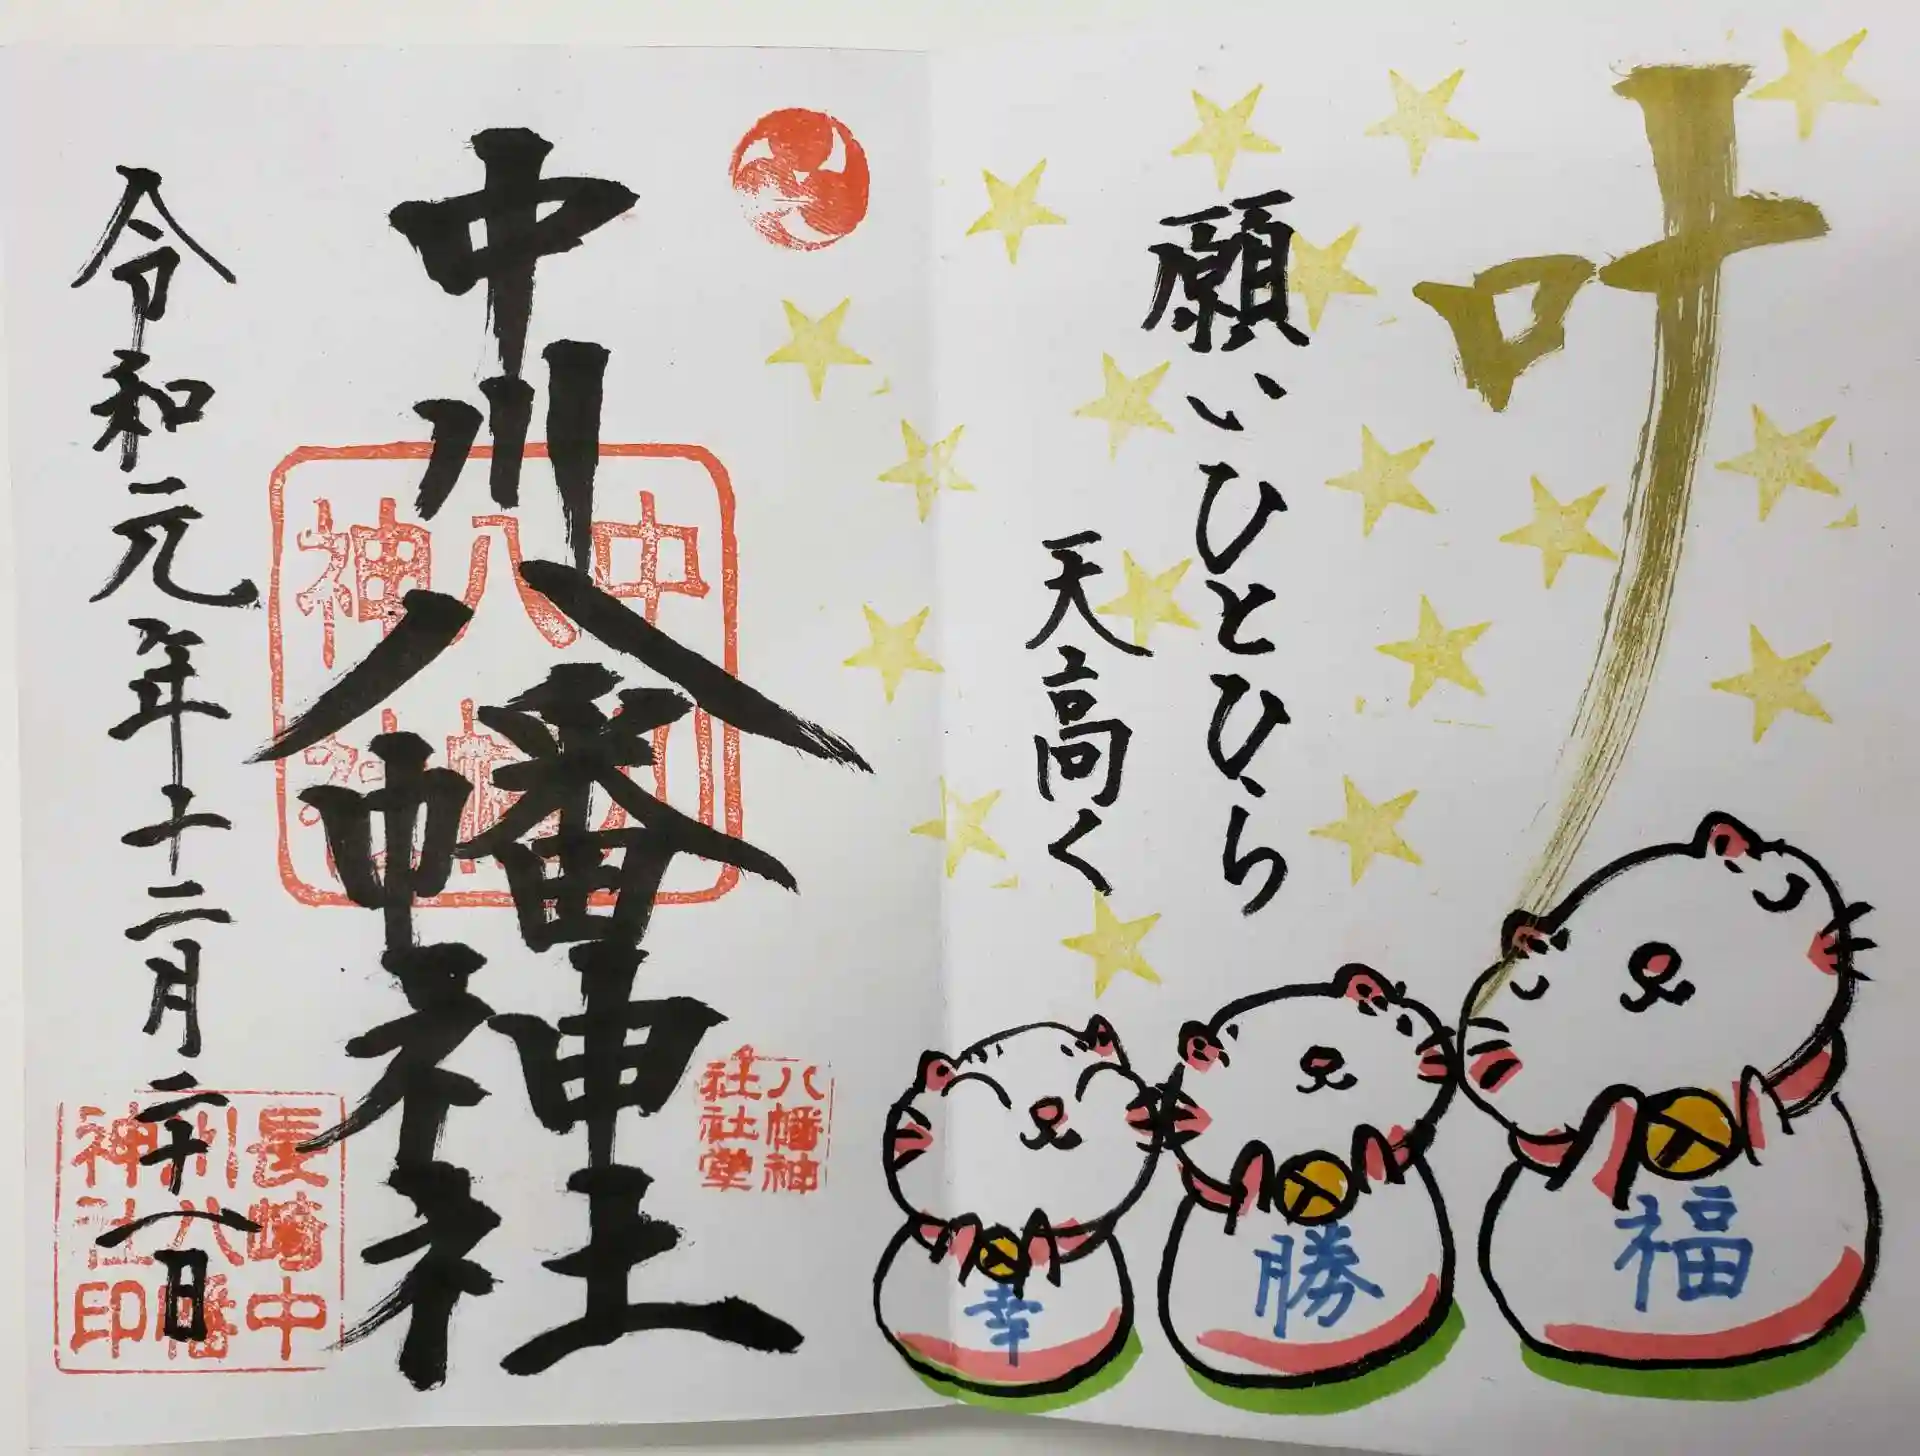 叶
願いひとひら
天高く
福
勝
幸
中川八幡神社
八幡神
社社掌
令和元年十二月二十八日
長崎中
川八幡
神社印